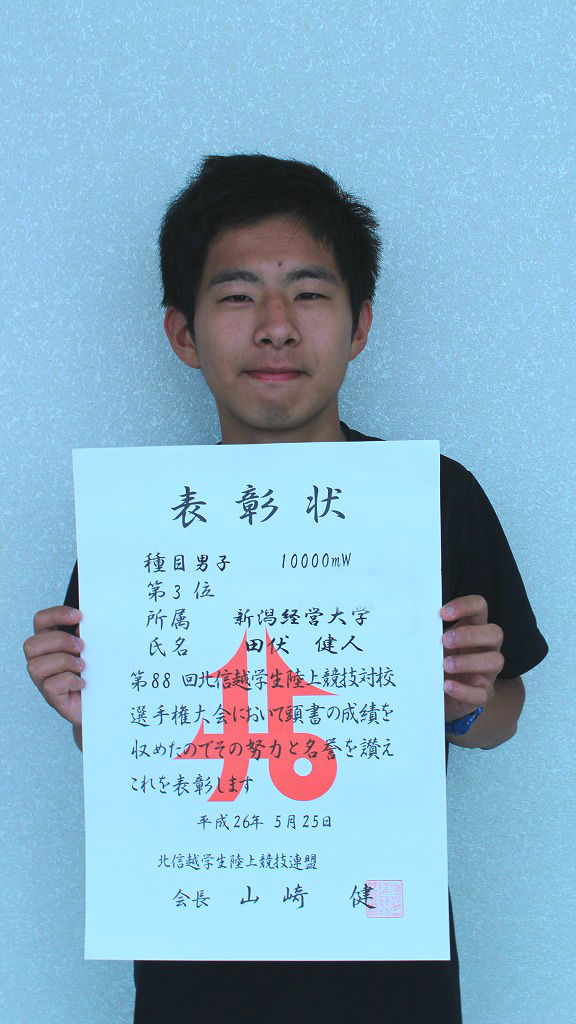 表彰状
種目男子 10000mW
第3位
所属 新潟経営大学
氏名 田伏 健人
第88回北信越学生陸上競技対校
選手権大会において頭書の成績を
収めたのでその努力と名誉を讃え
これを表彰します
平成26年 5月25日
北信越学生陸上競技連盟
会長 山崎 健